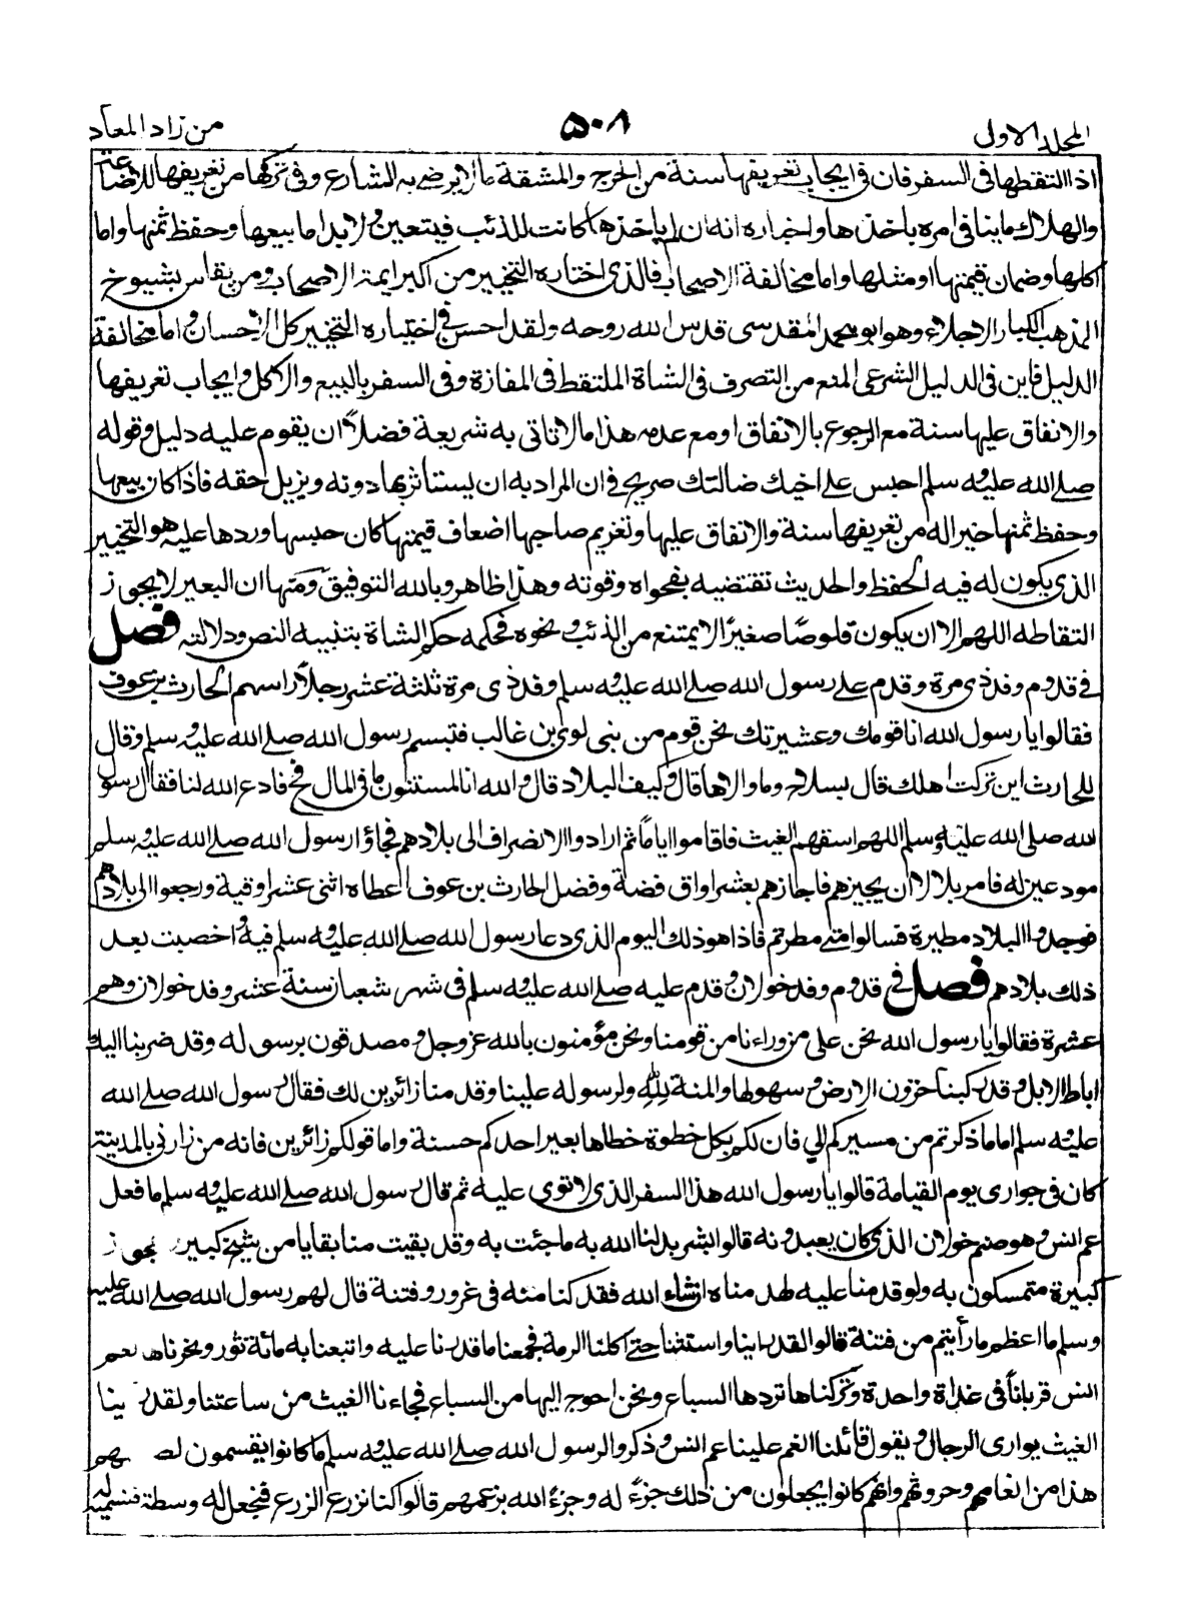 المجلد الاول ٥٠٨ من زاد المعاد
اذا التقطها فى السفر فان فى ايجاب تعريفها سنة من الحرج والمشقة ما لا يرضى به الشارع وفى تركها من تعريفها للاضاعة
والهلاك ما ينافى امره باخذها واخباره انه ان لم ياخذها كانت للذئب فيتعين ولا بد اما بيعها وحفظ ثمنها واما
اكلها وضمان قيمتها او مثلها واما مخالفة الاصحاب فالذى اختاره التخيير من اكبر ايمة الاصحاب ومن يقاس بشيوخ
المذهب الكبار الاجلاء وهو ابو محمد المقدسى قدس الله روحه ولقد احسن فى اختياره التخيير كل الاحسان واما مخالفة
الدليل فاين فى الدليل الشرعى المنع من التصرف فى الشاة الملتقط فى المفازة وفى السفر بالبيع والاكل وايجاب تعريفها
والانفاق عليها سنة مع الرجوع بالانفاق او مع عدمه هذا ما لا تاتى به شريعة فضلاً ان يقوم عليه دليل وقوله
صلے الله عليه وسلم احبس علے اخيك ضالتك صريح فى ان المراد به ان يستاثر بها دونه ويزيل حقه فاذا كان بيعها
وحفظ ثمنها خيرا له من تعريفها سنة والانفاق عليها وتغريم صاحبها اضعاف قيمتها كان حبسها وردها عليه هو التخيير
الذى يكون له فيه الحفظ والحديث تقتضيه بفحواه وقوته وهذا ظاهر وبالله التوفيق ومنها ان البعير لا يجوز
التقاطه اللهم الا ان يكون قلوصًا صغيرًا لا يمتنع من الذئب ونحوه فحكمه حكم الشاة بتنبيه النص ودلالته فصل
فى قدوم وفد ذى مرة وقدم على رسول الله صلے الله عليه وسلم وفد ذى مرة ثلثة عشر رجلاً راسهم الحارث بن عوف
فقالوا يا رسول الله انا قومك وعشيرتك نحن قوم من بنى لوى بن غالب فتبسم رسول الله صلے الله عليه وسلم وقال
للحارث اين تركت اهلك قال بسلاح وما والاها قال وكيف البلاد قال والله انا لمسنتون ما فى المال مخ فادع الله لنا فقال رسو
لله صلى الله عليه وسلم اللهم اسقهم الغيث فاقاموا اياماً ثم ارادوا الانصراف الى بلادهم فجاؤا رسول الله صلے الله عليه وسلم
مودعين له فامر بلالا ان يجيزهم فاجازهم بعشر اواق فضة وفضل الحارث بن عوف اعطاه اثنى عشر اوقية ورجعوا الى بلادهم
فوجدوا البلاد مطيرة فسالوا متى مطرتم فاذا هو ذلك اليوم الذى دعا رسول الله صلے الله عليه وسلم فيه واخصبت بعد
ذلك بلادهم فصل فى قدوم وفد خولان وقدم عليه صلے الله عليه وسلم فى شهر شعبان سنة عشر وفد خولان وهم
عشرة فقالوا يا رسول الله نحن على من وراءنا من قومنا ونحن مؤمنون بالله عز وجل ومصدقون برسوله وقد ضربنا اليك
اباط الابل وقد ركبنا حزون الارض وسهولها والمنة لله ولرسوله علينا وقدمنا زائرين لك فقال رسول الله صلے الله
عليه وسلم اما ما ذكرتم من مسيركم الى فان لكم بكل خطوة خطاها بعير احدكم حسنة واما قولكم زائرين فانه من زارنى بالمدينة
كان فى جوارى يوم القيامة قالوا يا رسول الله هذا السفر الذى لا توى عليه ثم قال رسول الله صلے الله عليه وسلم ما فعل
عم انس وهو صنم خولان الذى كان يعبدونه قالوا ابشر بدلنا الله به ما جئت به وقد بقيت منا بقايا من شيخ كبير وعجوز
كبيرة متمسكون به ولو قدمنا عليه لهدمناه ان شاء الله فقد كنا منه فى غرور وفتنة قال لهم رسول الله صلے الله عليه
وسلم ما اعظم ما رأيتم من فتنة قالوا لقد رايتنا واسنتنا حتے اكلنا الرمة فجمعنا ما قدرنا عليه وابتعنا به مائة ثور ونحرناها لعم
انس قرباناً فى غداة واحدة وتركناها تردها السباع ونحن احوج اليها من السباع فجاءنا الغيث من ساعتنا ولقد راينا
الغيث يوارى الرجال ويقول قائلنا انعم علينا عم انس وذكروا لرسول الله صلے الله عليه وسلم ما كانوا يقسمون لصنمهم
هذا من انعامهم وحروثهم وانهم كانوا يجعلون من ذلك جزءً له وجزءً الله بزعمهم قالوا كنا نزرع الزرع فنجعل له وسطة فنسميه له